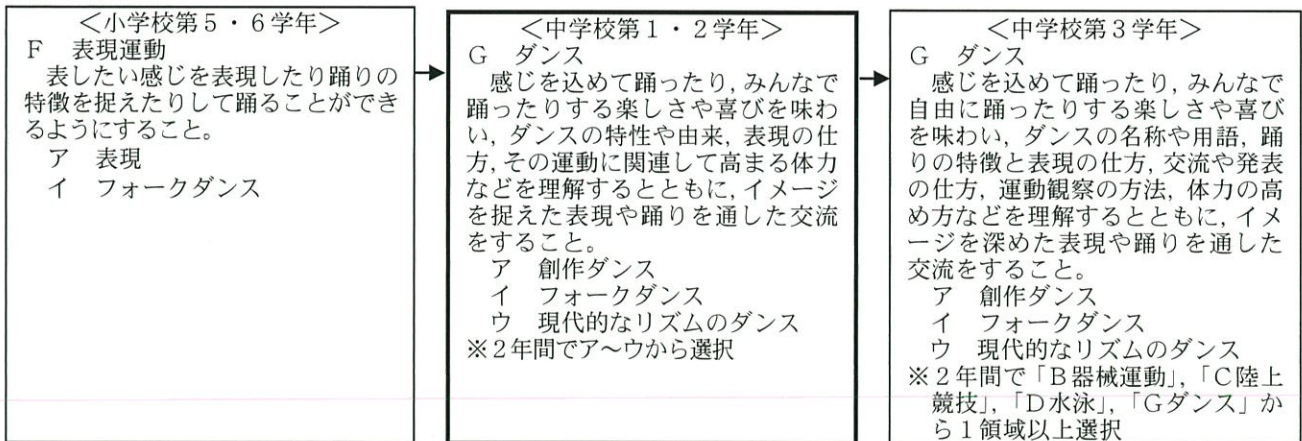 ＜小学校第５・６学年＞
Ｆ　表現運動
　表したい感じを表現したり踊りの
特徴を捉えたりして踊ることができ
るようにすること。
　ア　表現
　イ　フォークダンス
＜中学校第１・２学年＞
Ｇ　ダンス
　感じを込めて踊ったり，みんなで
踊ったりする楽しさや喜びを味わ
い，ダンスの特性や由来，表現の仕
方，その運動に関連して高まる体力
などを理解するとともに，イメージ
を捉えた表現や踊りを通した交流
をすること。
　ア　創作ダンス
　イ　フォークダンス
　ウ　現代的なリズムのダンス
※２年間でア～ウから選択
＜中学校第３学年＞
Ｇ　ダンス
　感じを込めて踊ったり，みんなで
自由に踊ったりする楽しさや喜び
を味わい，ダンスの名称や用語，踊
りの特徴と表現の仕方，交流や発表
の仕方，運動観察の方法，体力の高
め方などを理解するとともに，イメ
ージを深めた表現や踊りを通した
交流をすること。
　ア　創作ダンス
　イ　フォークダンス
　ウ　現代的なリズムのダンス
※２年間で「Ｂ器械運動」，「Ｃ陸上
競技」，「Ｄ水泳」，「Ｇダンス」か
ら１領域以上選択